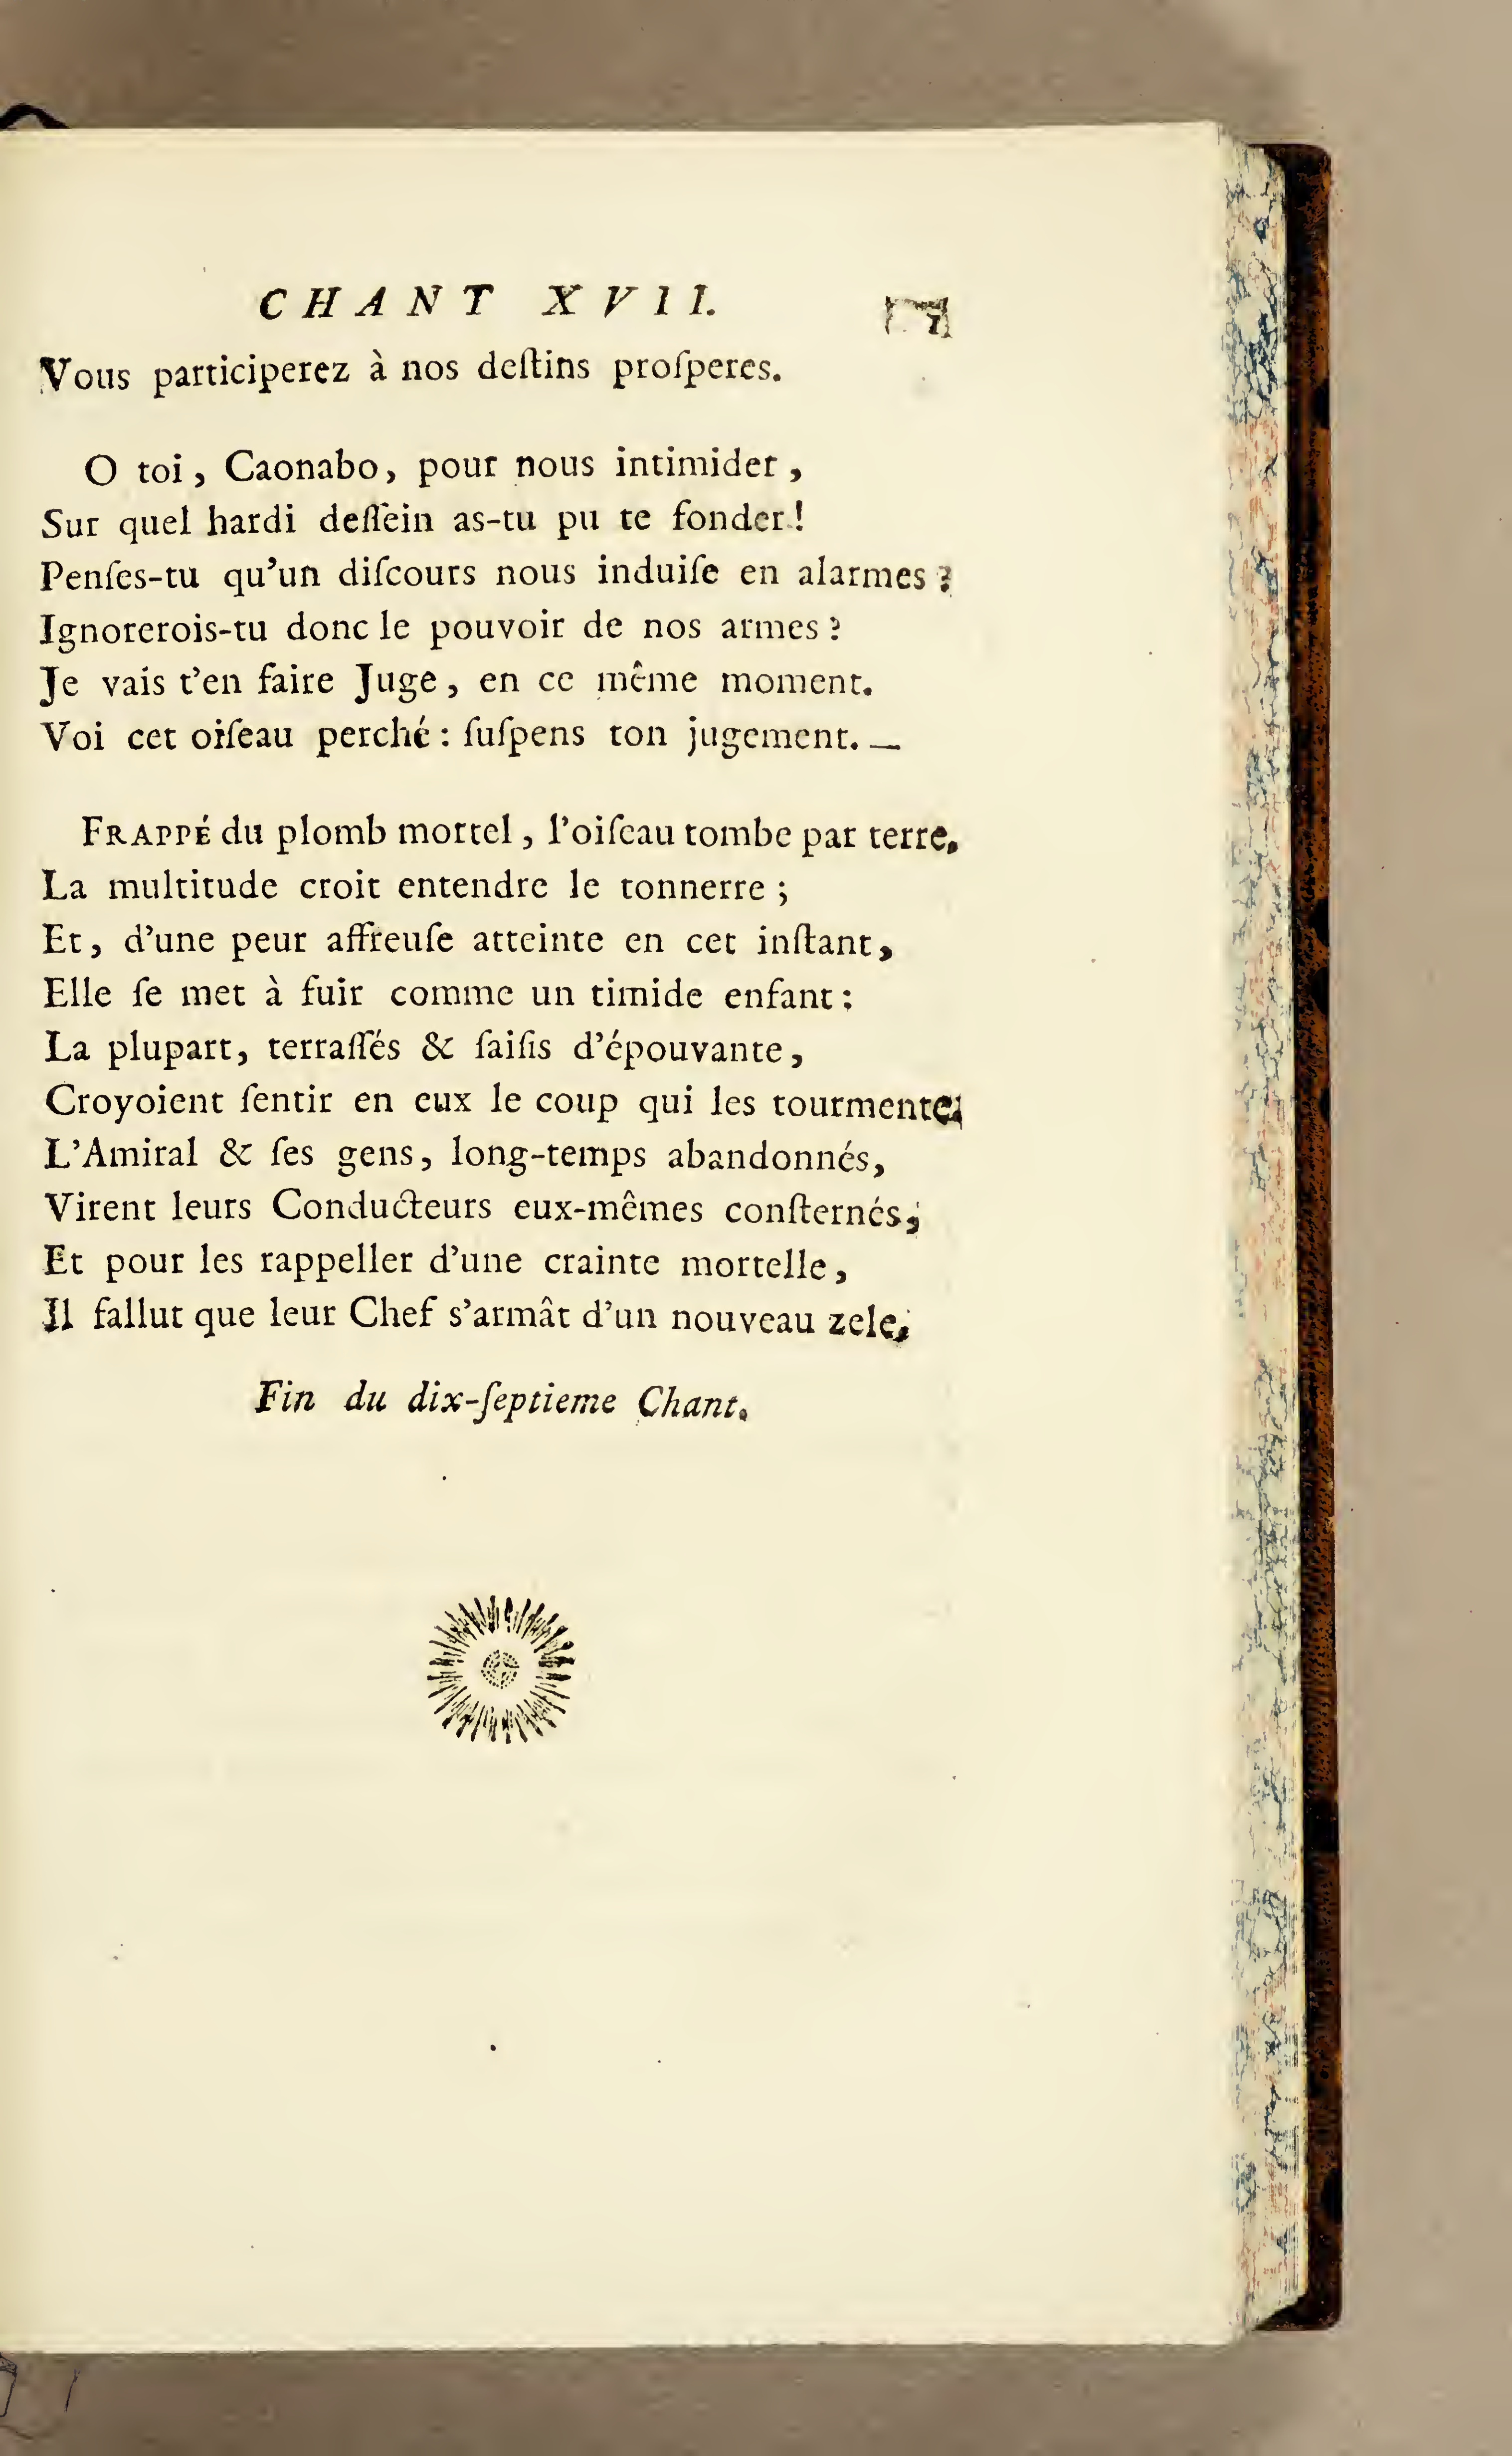 CHANT XVII.
Vous participerez à nos deſtins proſperes.
O toi, Caonabo, pour nous intimider,
Sur quel hardi deſſein as-tu pu te fonder!
Penſes-tu qu'un diſcours nous induiſe en alarmes?
Ignorerois-tu donc le pouvoir de nos armes?
Je vais t'en faire Juge, en ce même moment.
Voi cet oiſeau perché: ſuſpens ton jugement. —
FRAPPÉ du plomb mortel, l'oiſeau tombe par terre,
La multitude croit entendre le tonnerre;
Et, d'une peur affreuſe atteinte en cet inſtant,
Elle ſe met à fuir comme un timide enfant:
La plupart, terraſſés & ſaiſis d'épouvante,
Croyoient ſentir en eux le coup qui les tourmente;
L'Amiral & ſes gens, long-temps abandonnés,
Virent leurs Conducteurs eux-mêmes conſternés;
Et pour les rappeller d'une crainte mortelle,
Il fallut que leur Chef s'armât d'un nouveau zele.
Fin du dix-ſeptieme Chant.